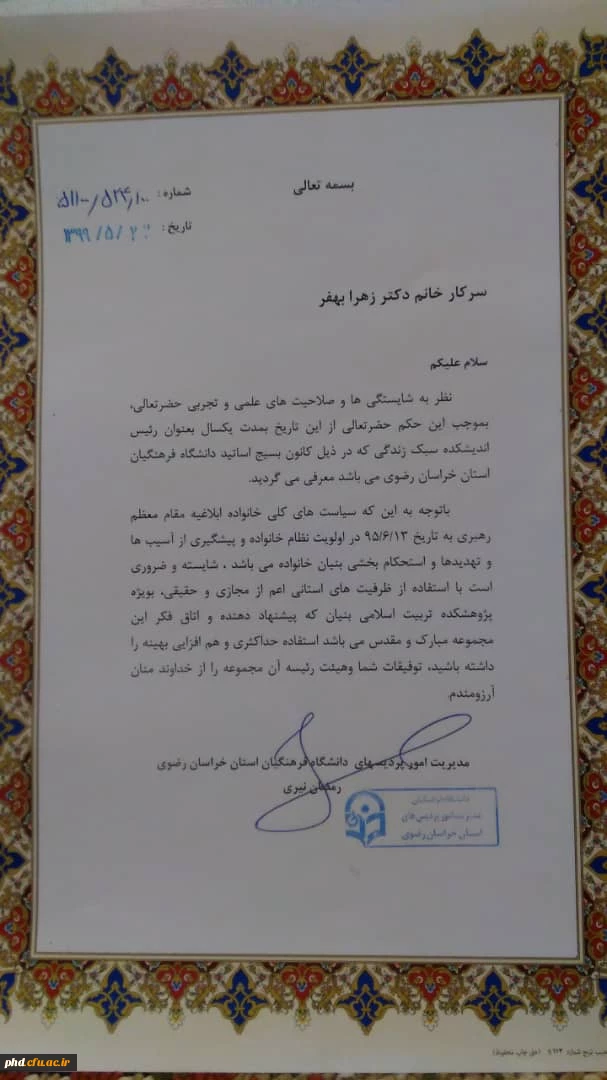 بسمه تعالی
شماره:
تاریخ: ۱۳۹۹/۵/۲
سرکار خانم دکتر زهرا بهفر
سلام علیکم
نظر به شایستگی ها و صلاحیت های علمی و تجربی حضرتعالی،
بموجب این حکم حضرتعالی از این تاریخ بمدت یکسال بعنوان رئیس
اندیشکده سبک زندگی که در ذیل کانون بسیج اساتید دانشگاه فرهنگیان
استان خراسان رضوی می باشد معرفی می گردید.
باتوجه به این که سیاست های کلی خانواده ابلاغیه مقام معظم
رهبری به تاریخ ۹۵/۶/۱۳ در اولویت نظام خانواده و پیشگیری از آسیب ها
و تهدیدها و استحکام بخشی بنیان خانواده می باشد ، شایسته و ضروری
است با استفاده از ظرفیت های استانی اعم از مجازی و حقیقی، بویژه
پژوهشکده تربیت اسلامی بنیان که پیشنهاد دهنده و اتاق فکر این
مجموعه مبارک و مقدس می باشد استفاده حداکثری و هم افزایی بهینه را
داشته باشید، توفیقات شما وهیئت رئیسه آن مجموعه را از خداوند منان
آرزومندم.
مدیریت امور پردیسهای دانشگاه فرهنگیان استان خراسان رضوی
رمضان نیری
دانشگاه فرهنگیان
مدیریت امور پردیس های
استان خراسان رضوی
(حق چاپ محفوظ)
phd.cfu.ac.ir